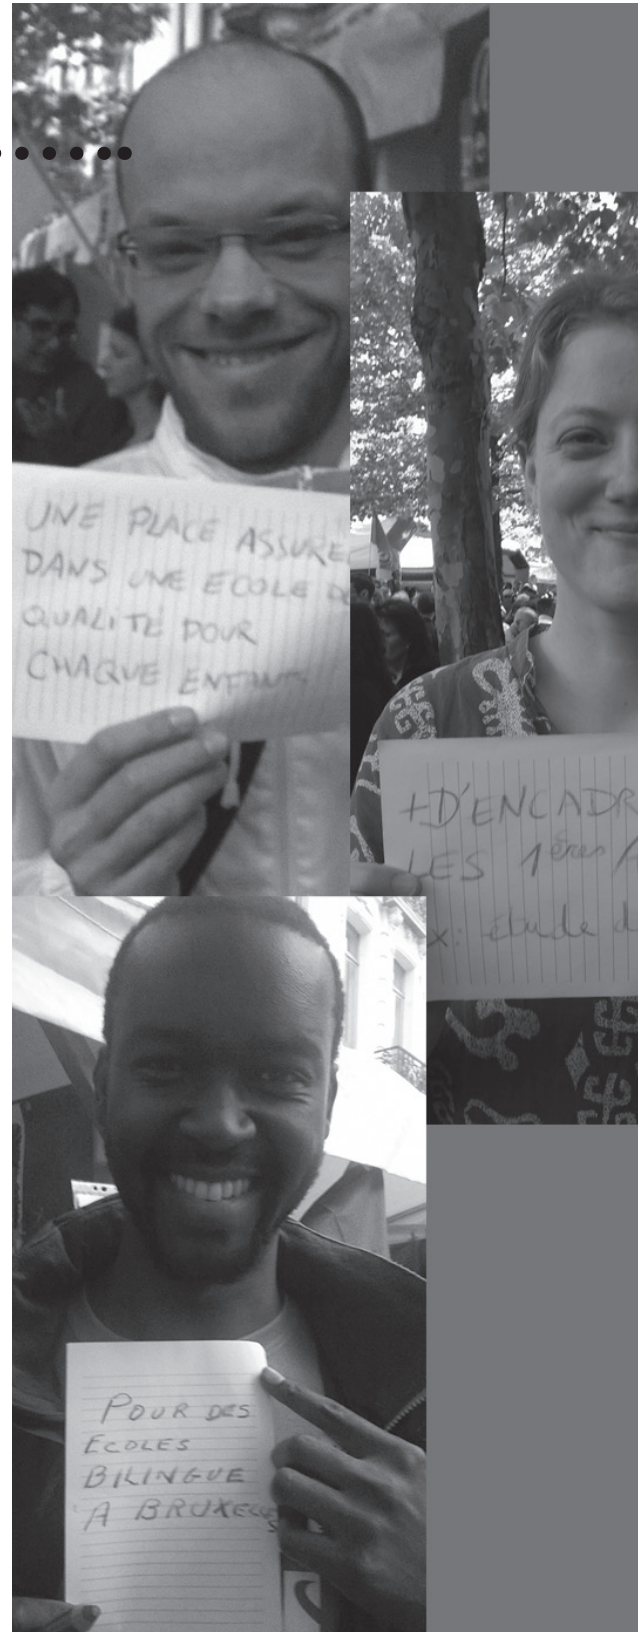 UNE PLACE ASSURE
DANS UNE ECOLE DE
QUALITÉ POUR
CHAQUE ENFANT
+D'ENCADR
LES 1ères /
x: étude d
POUR DES
ECOLES
BILINGUE
A BRUXELLES